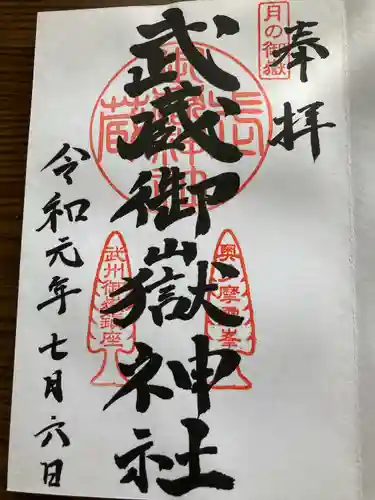 月の御嶽
奉拝
武蔵御嶽神社
奥多摩霊峯
武州御嶽銀座
令和元年七月六日